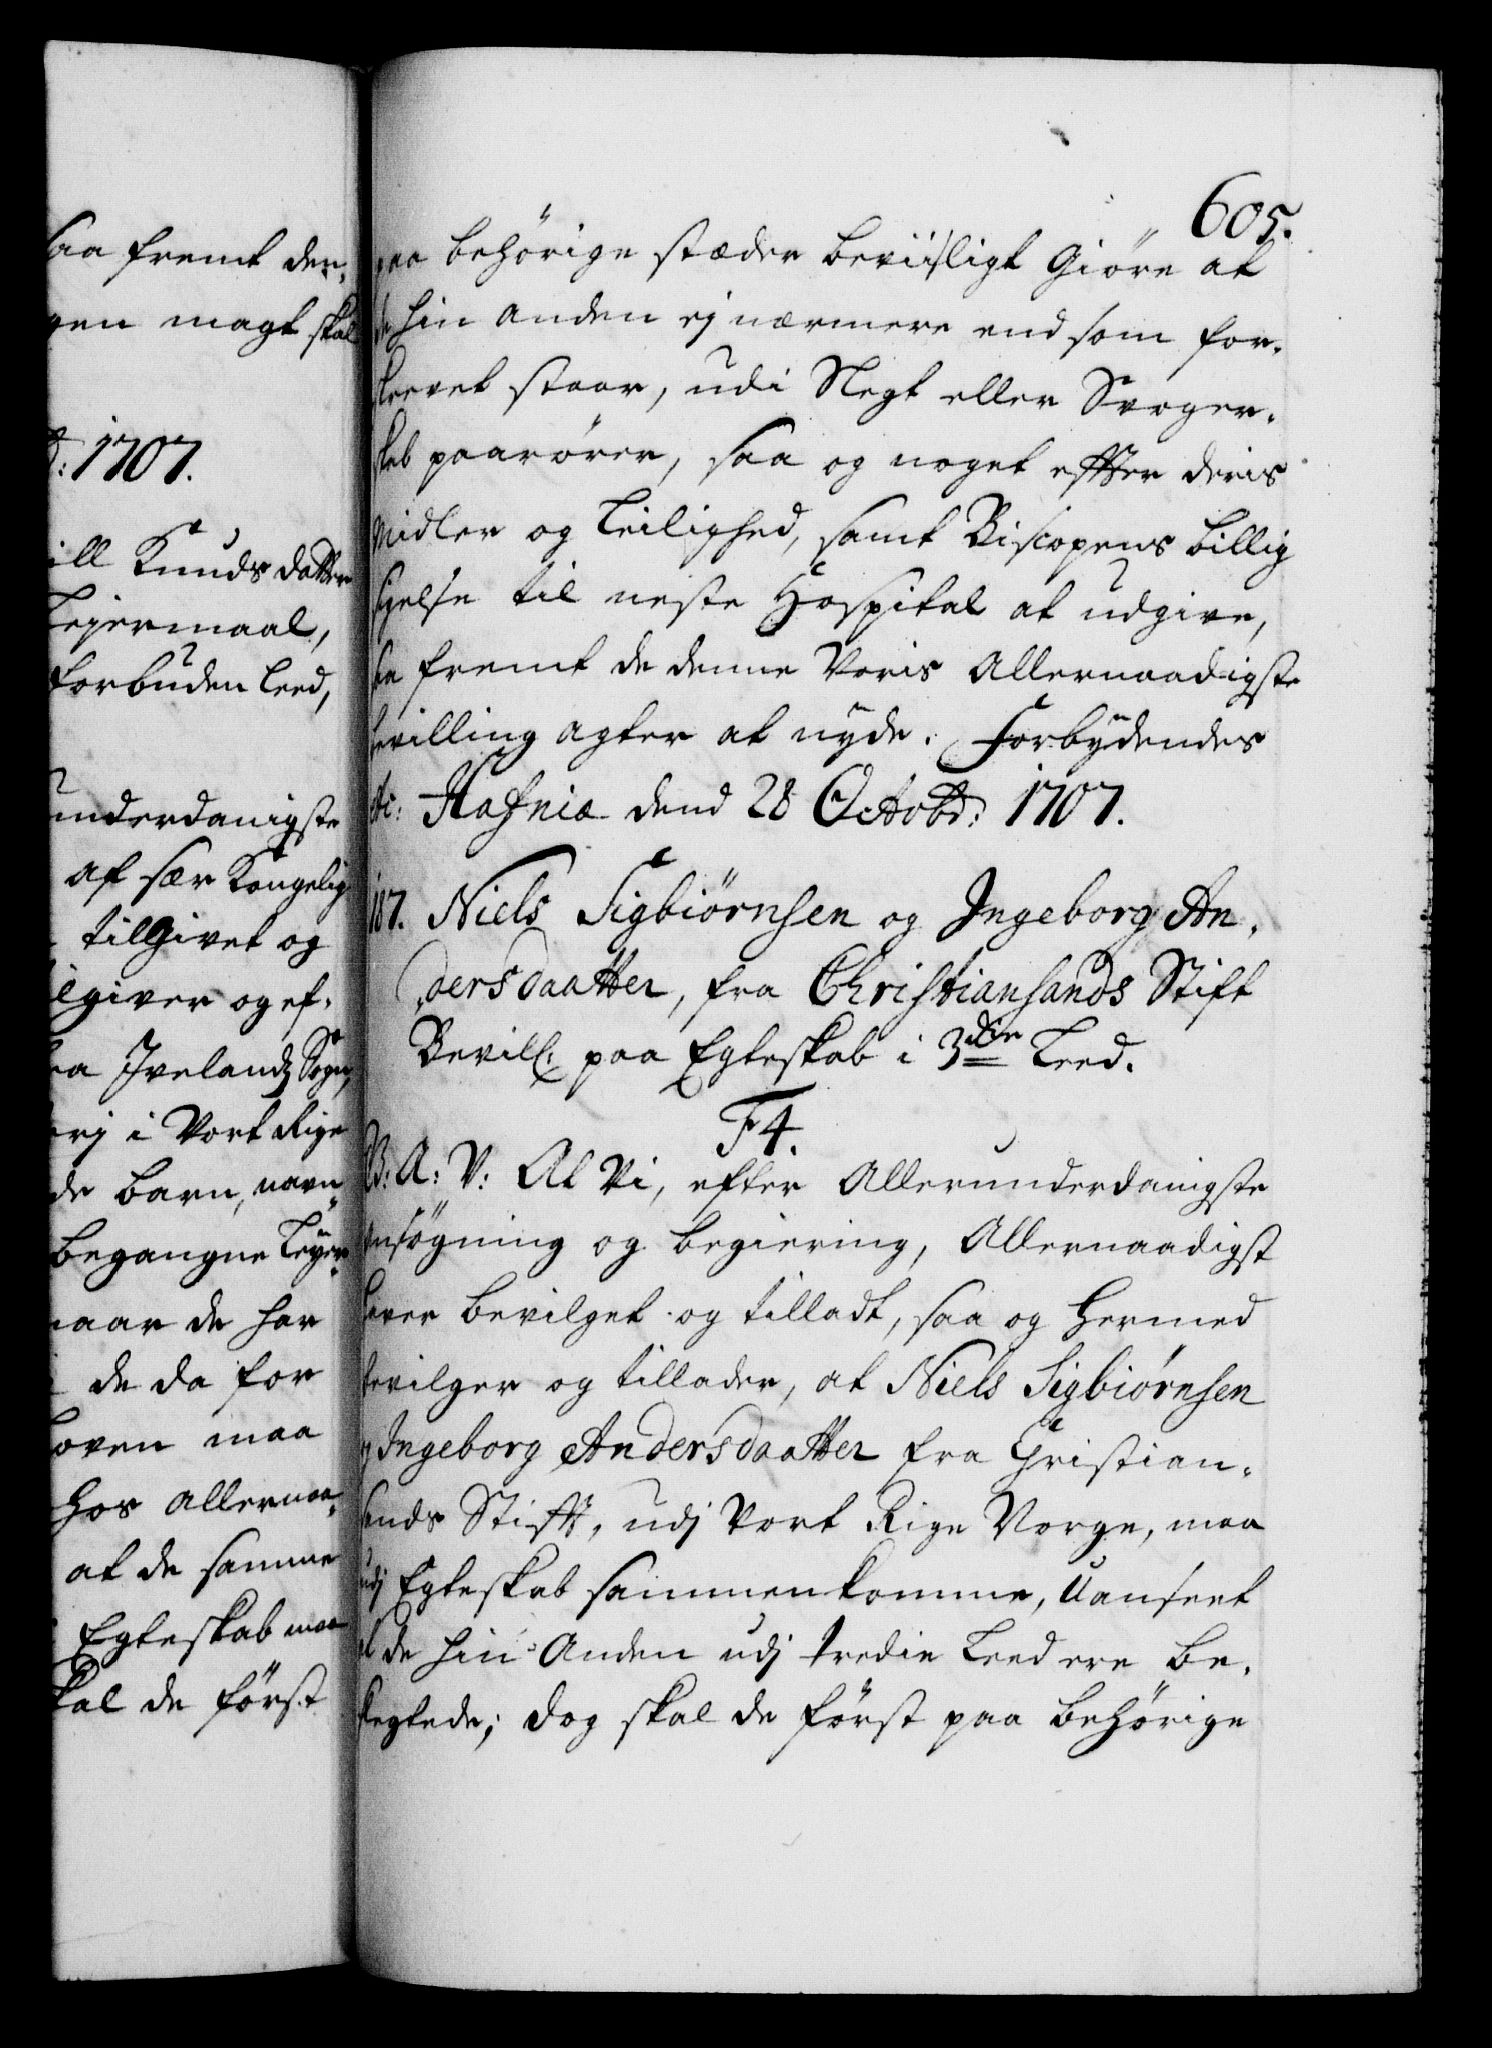 605.
saa fremt den„
gen magt skal
1707.
ill Knuds datter
Lejermaal,
forbuden Leed,
underdanigste
af sær Kongelig
tilgivet og
ilgiver og ef„
Ivelandz Sogn,
i Vort Rige
de barn, navn„
begangne Leyer„
naar de har
de da for
Loven maa
hos allernaa„
at de samme
Egteskab maa
skal de först
paa behörige stæder beviisligt Giöre at
de hin anden ej nærmere end som for„
skrevet staar, udi Slegt eller Svoger„
skab paarörer, saa og noget effter deris
Midler og Leilighed, samt Biscopens billig
sigelse til neste Hospital at udgive,
saa fremt de denne Voris Allernaadigste
bevilling agter at nyde. Forbydendes
etc: Hafniæ dend 28 Octobr: 1707.
187. Niels Sigbiörnsen og Ingeborg An„
dersdaatter, fra Christiansands Stift
Bevill: paa Egteskab i 3die Leed.
F4.
G: A: V: At Vi, efter Allerunderdanigste
Ansögning og begiering, Allernaadigst
haver bevilget og tilladt, saa og hermed
bevilger og tillader, at Niels Sigbiörnsen
og Ingeborg Andersdaatter fra Christian„
sands Stifft, udj Vort Rige Norge, maa
udj Egteskab sammenkomme, Uanseet
at de hin Anden udj tredie Leed ere be„
slegtede; dog skal de först paa behörige